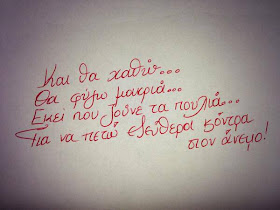 Και θα χαθώ...
Θα φύγω μακριά...
Εκεί που ζούνε τα πουλιά...
Για να πετώ ελεύθερα κόντρα
στον άνεμο!